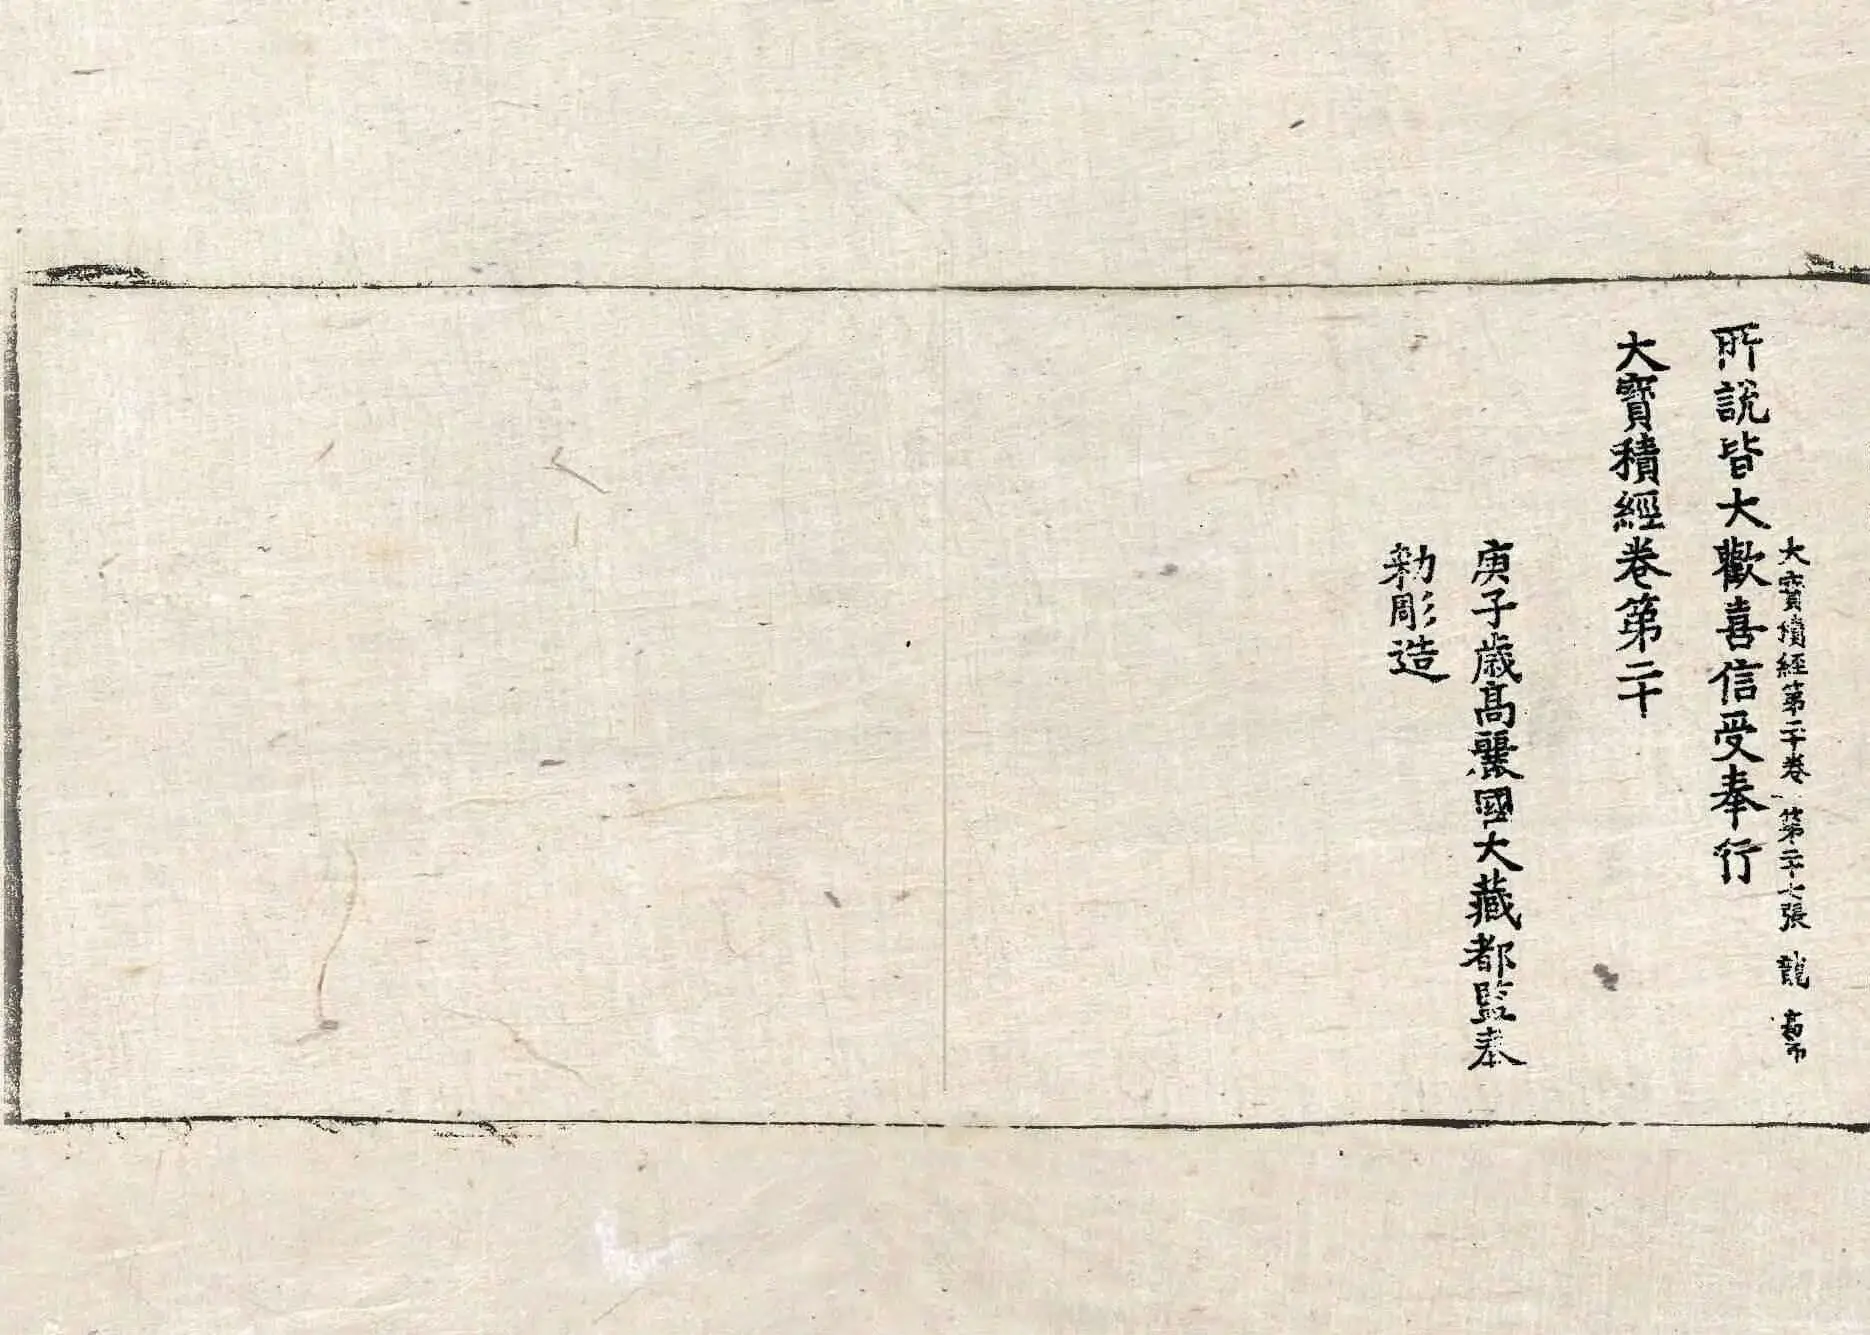 大寶積經第二十卷 第二十七張 龍
所說皆大歡喜信受奉行
大寶積經卷第二十
庚子歲高麗國大藏都監奉
勑彫造